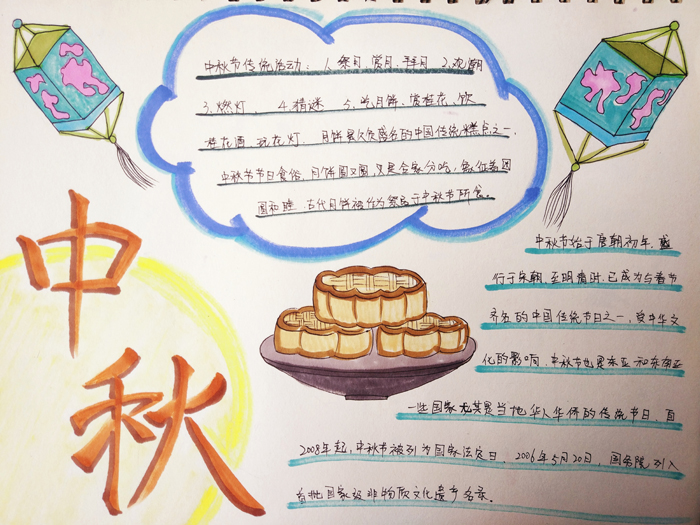 中秋节传统活动：1.祭月、赏月、拜月 2.观潮
3.燃灯、 4.猜谜 5.吃月饼、赏桂花、饮
桂花酒 玩花灯. 月饼是久负盛名的中国传统糕点之一.
中秋节节日食俗.月饼圆又圆,又是合家分吃,象征着团
团和睦.古代月饼被作为祭品于中秋节所食。
中秋
中秋节始于唐朝初年,盛
行于宋朝,至明清时,已成为与春节
齐名的中国传统节日之一,受中华文
化的影响,中秋节也是东亚和东南亚
一些国家尤其是当地华人华侨的传统节日,自
2008年起,中秋节被列为国家法定日,2006年5月20日,国务院列入
首批国家级非物质文化遗产名录。